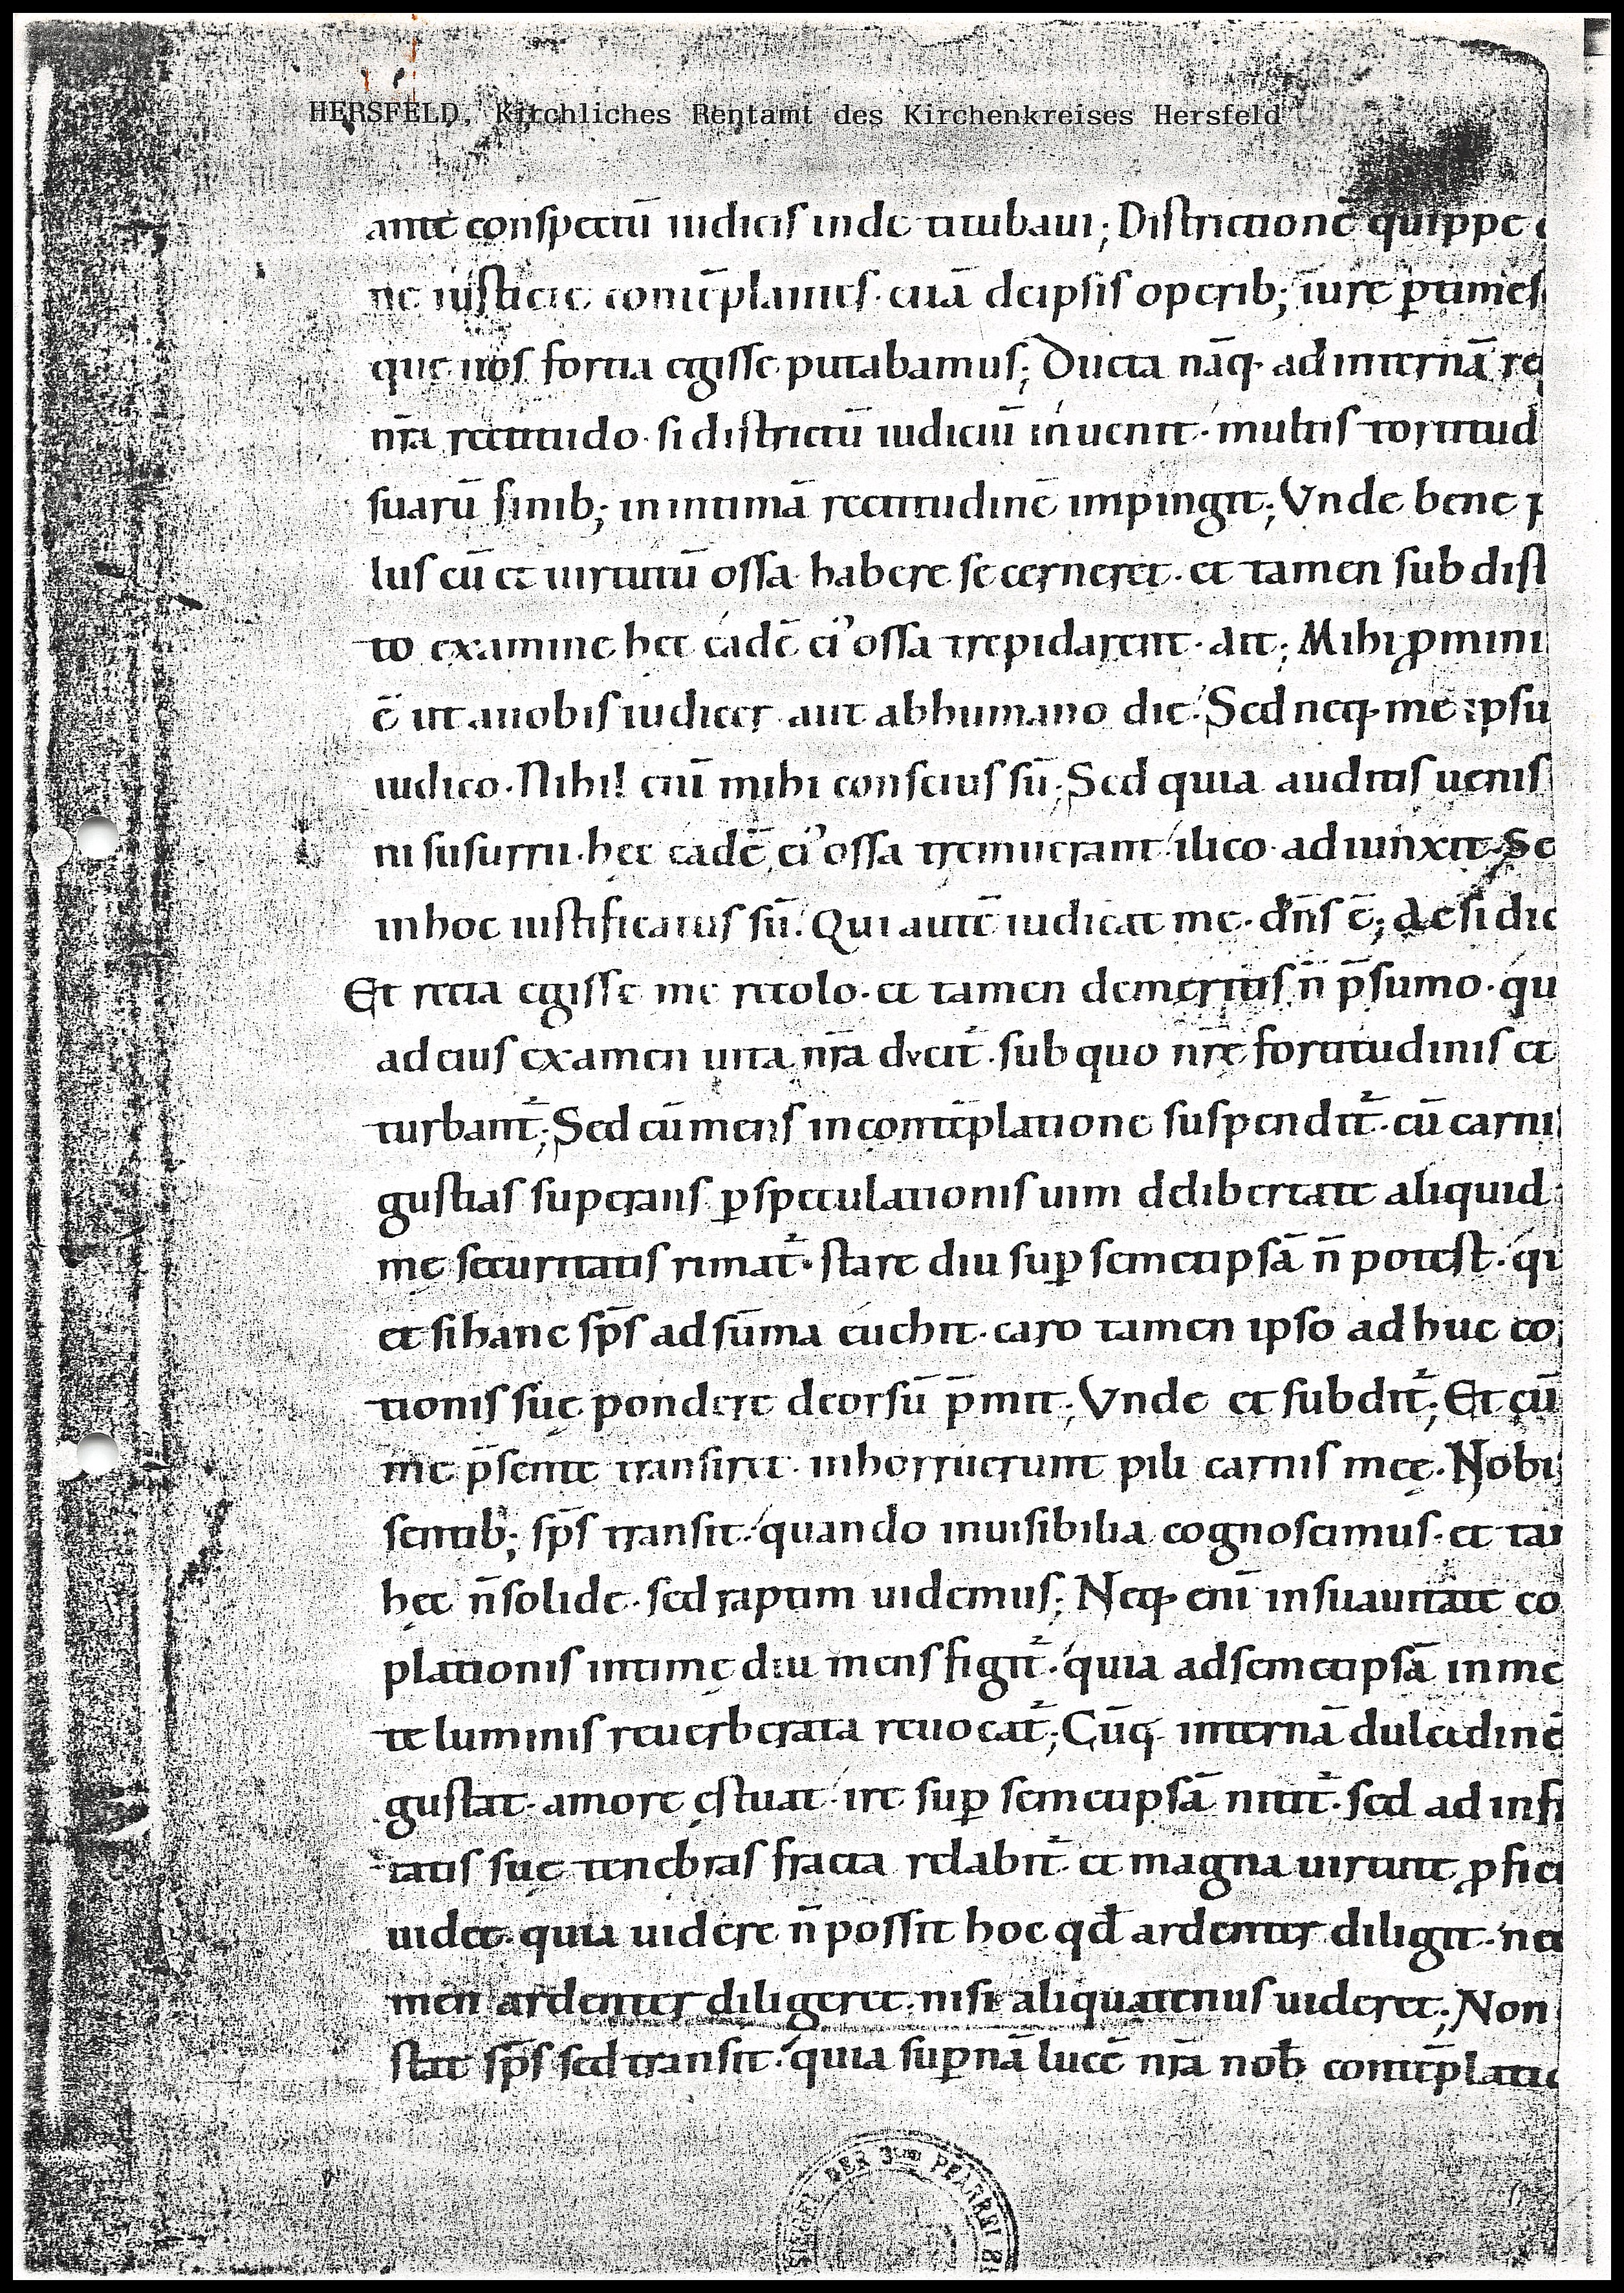 HERSFELD, Kirchliches Rentamt des Kirchenkreises Hersfeld
ante conspectū iudicis inde titubaui; Districtionē quippe
ne iusticie contēplantes· etiā deipsis operib; iure ꝑtimes
que nos fortia egisse putabamus; Ducta nāq· ad internā re
nr̄a rectitudo· si districtū iudiciū inuenit· multis tortitud
suarū sinib; in intimā rectitudinē impingit; Vnde bene p
lus cū et uirtutū ossa habere se cerneret· et tamen sub dist
to examine hec eadē ei' ossa trepidarent· ait; Mihi ꝓ mini
ē ut auobis iudicer aut abhumano die· Sed neq· me ipsu
iudico· Nihil eni̅ mihi conscius sū; Sed quia auditis uenis
ni susurrii· hec eadē ei' ossa tremuerant· ilico adiunxit· Se
inhoc iustificatus sū· Qui autē iudicat me· dn̄s ē; ac si dic
Et recta egisse me recolo· et tamen demeritis n̄ p̄sumo· qu
ad eius examen uita nr̄a dvcit᷑· sub quo nr̄e fortitudinis et
turbant᷑; Sed cū mens in contēplatione suspendit᷑· cū carni
gustias superans ꝑ speculationis uim delibertate aliquid
mę securitatis rimat᷑· stare diu suꝑ semetipsā n̄ potest· qu
et si hanc sp̄s ad sūma euehit· caro tamen ipso ad huc co
tionis suę pondere deorsū p̄mit; Vnde et subdit᷑; Et cū
me p̄sente transiret· inhorruerunt pili carnis meę· Nobi
sentib; sp̄s transit· quando inuisibilia cognoscimus· et ta
hęc n̄ solide· sed raptim uidemus; Neq· enī in suauitate co
plationis intimę diu mens figit᷑· quia ad semetipsā in me
te luminis reuerberata reuocat᷑; Cūq· internā dulcedinē
gustat· amore ęstuat· ire suꝑ semetipsā nitit᷑· sed ad infi
tatis suę tenebras fracta relabit᷑· et magna uirtute ꝓfici
uidet· quia uidere n̄ possit hoc qđ ardenter diligit· nec
men ardenter diligeret· nisi aliquatenus uideret; Non
stat sp̄s sed transit· quia suꝑnā lucē nr̄a nob̄ contēplatio
SIEGEL DER 3ten PFARREI